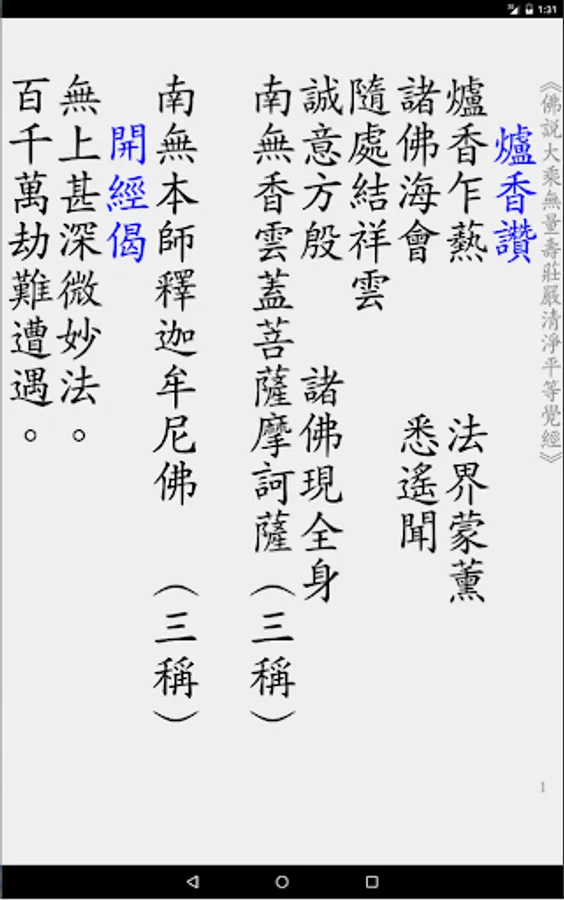 1:31
《佛説大乘無量壽莊嚴清淨平等覺經》
爐香讚
爐香乍爇　法界蒙薰
諸佛海會　悉遙聞
隨處結祥雲
誠意方殷　諸佛現全身
南無香雲蓋菩薩摩訶薩（三稱）
南無本師釋迦牟尼佛（三稱）
開經偈
無上甚深微妙法。
百千萬劫難遭遇。
1